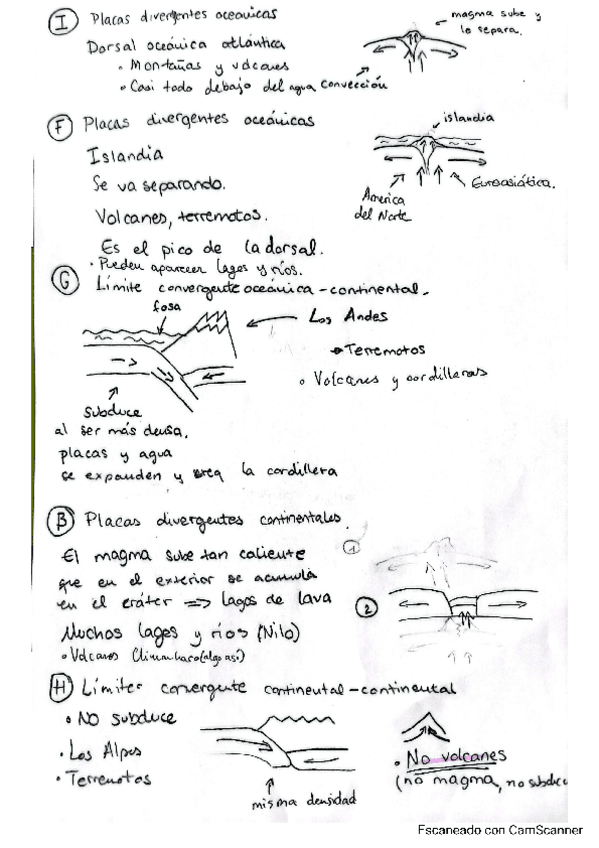 I Placas divergentes oceánicas
magma sube y
lo separa.
Dorsal oceánica atlántica
• Montañas y volcanes
• Casi todo debajo del agua
convección
F Placas divergentes oceánicas
islandia
Islandia
Se va separando.
America
del Norte
Euroasiática.
Volcanes, terremotos.
Es el pico de la dorsal.
• Pueden aparecer lagos y ríos.
G Límite convergente oceánica-continental.
fosa
Los Andes
Terremotos
• Volcanes y cordilleras
Subduce
al ser más densa.
placas y agua
se expanden y crea la cordillera
B Placas divergentes continentales.
1
El magma sube tan caliente
que en el exterior se acumula
en el cráter => lagos de lava
2
Muchos lagos y ríos (Nilo)
• Volcanes (algo así)
H Límites convergente continental-continental
• No subduce
• Los Alpes
• Terremotos
misma densidad
• No volcanes
(no magma, no subduce
Escaneado con CamScanner